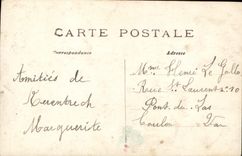 CARTE POSTALE
Correspondance
Adresse
Amitiés de
Kerentrech
Marguerite
Mme Henri Le Gallo
Rue St Laurent n° 10
Pont du Las
Toulon Var